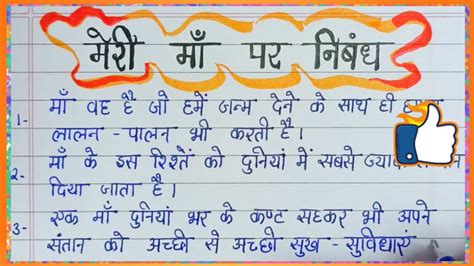 मेरी माँ पर निबंध
1- माँ वह है जो हमें जन्म देने के साथ ही
लालन - पालन भी करती है।
2- माँ के इस रिश्तें को दुनियां में सबसे
दिया जाता है।
3- एक माँ दुनियां भर के कष्ट सहकर भी अपने
संतान को अच्छी से अच्छी सुख - सुविधाएं